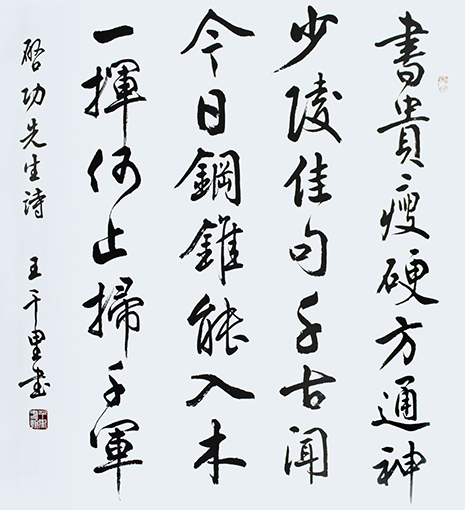 書貴瘦硬方通神
少陵佳句千古聞
今日鋼錐能入木
一揮何止掃千軍
啓功先生詩 王千里書